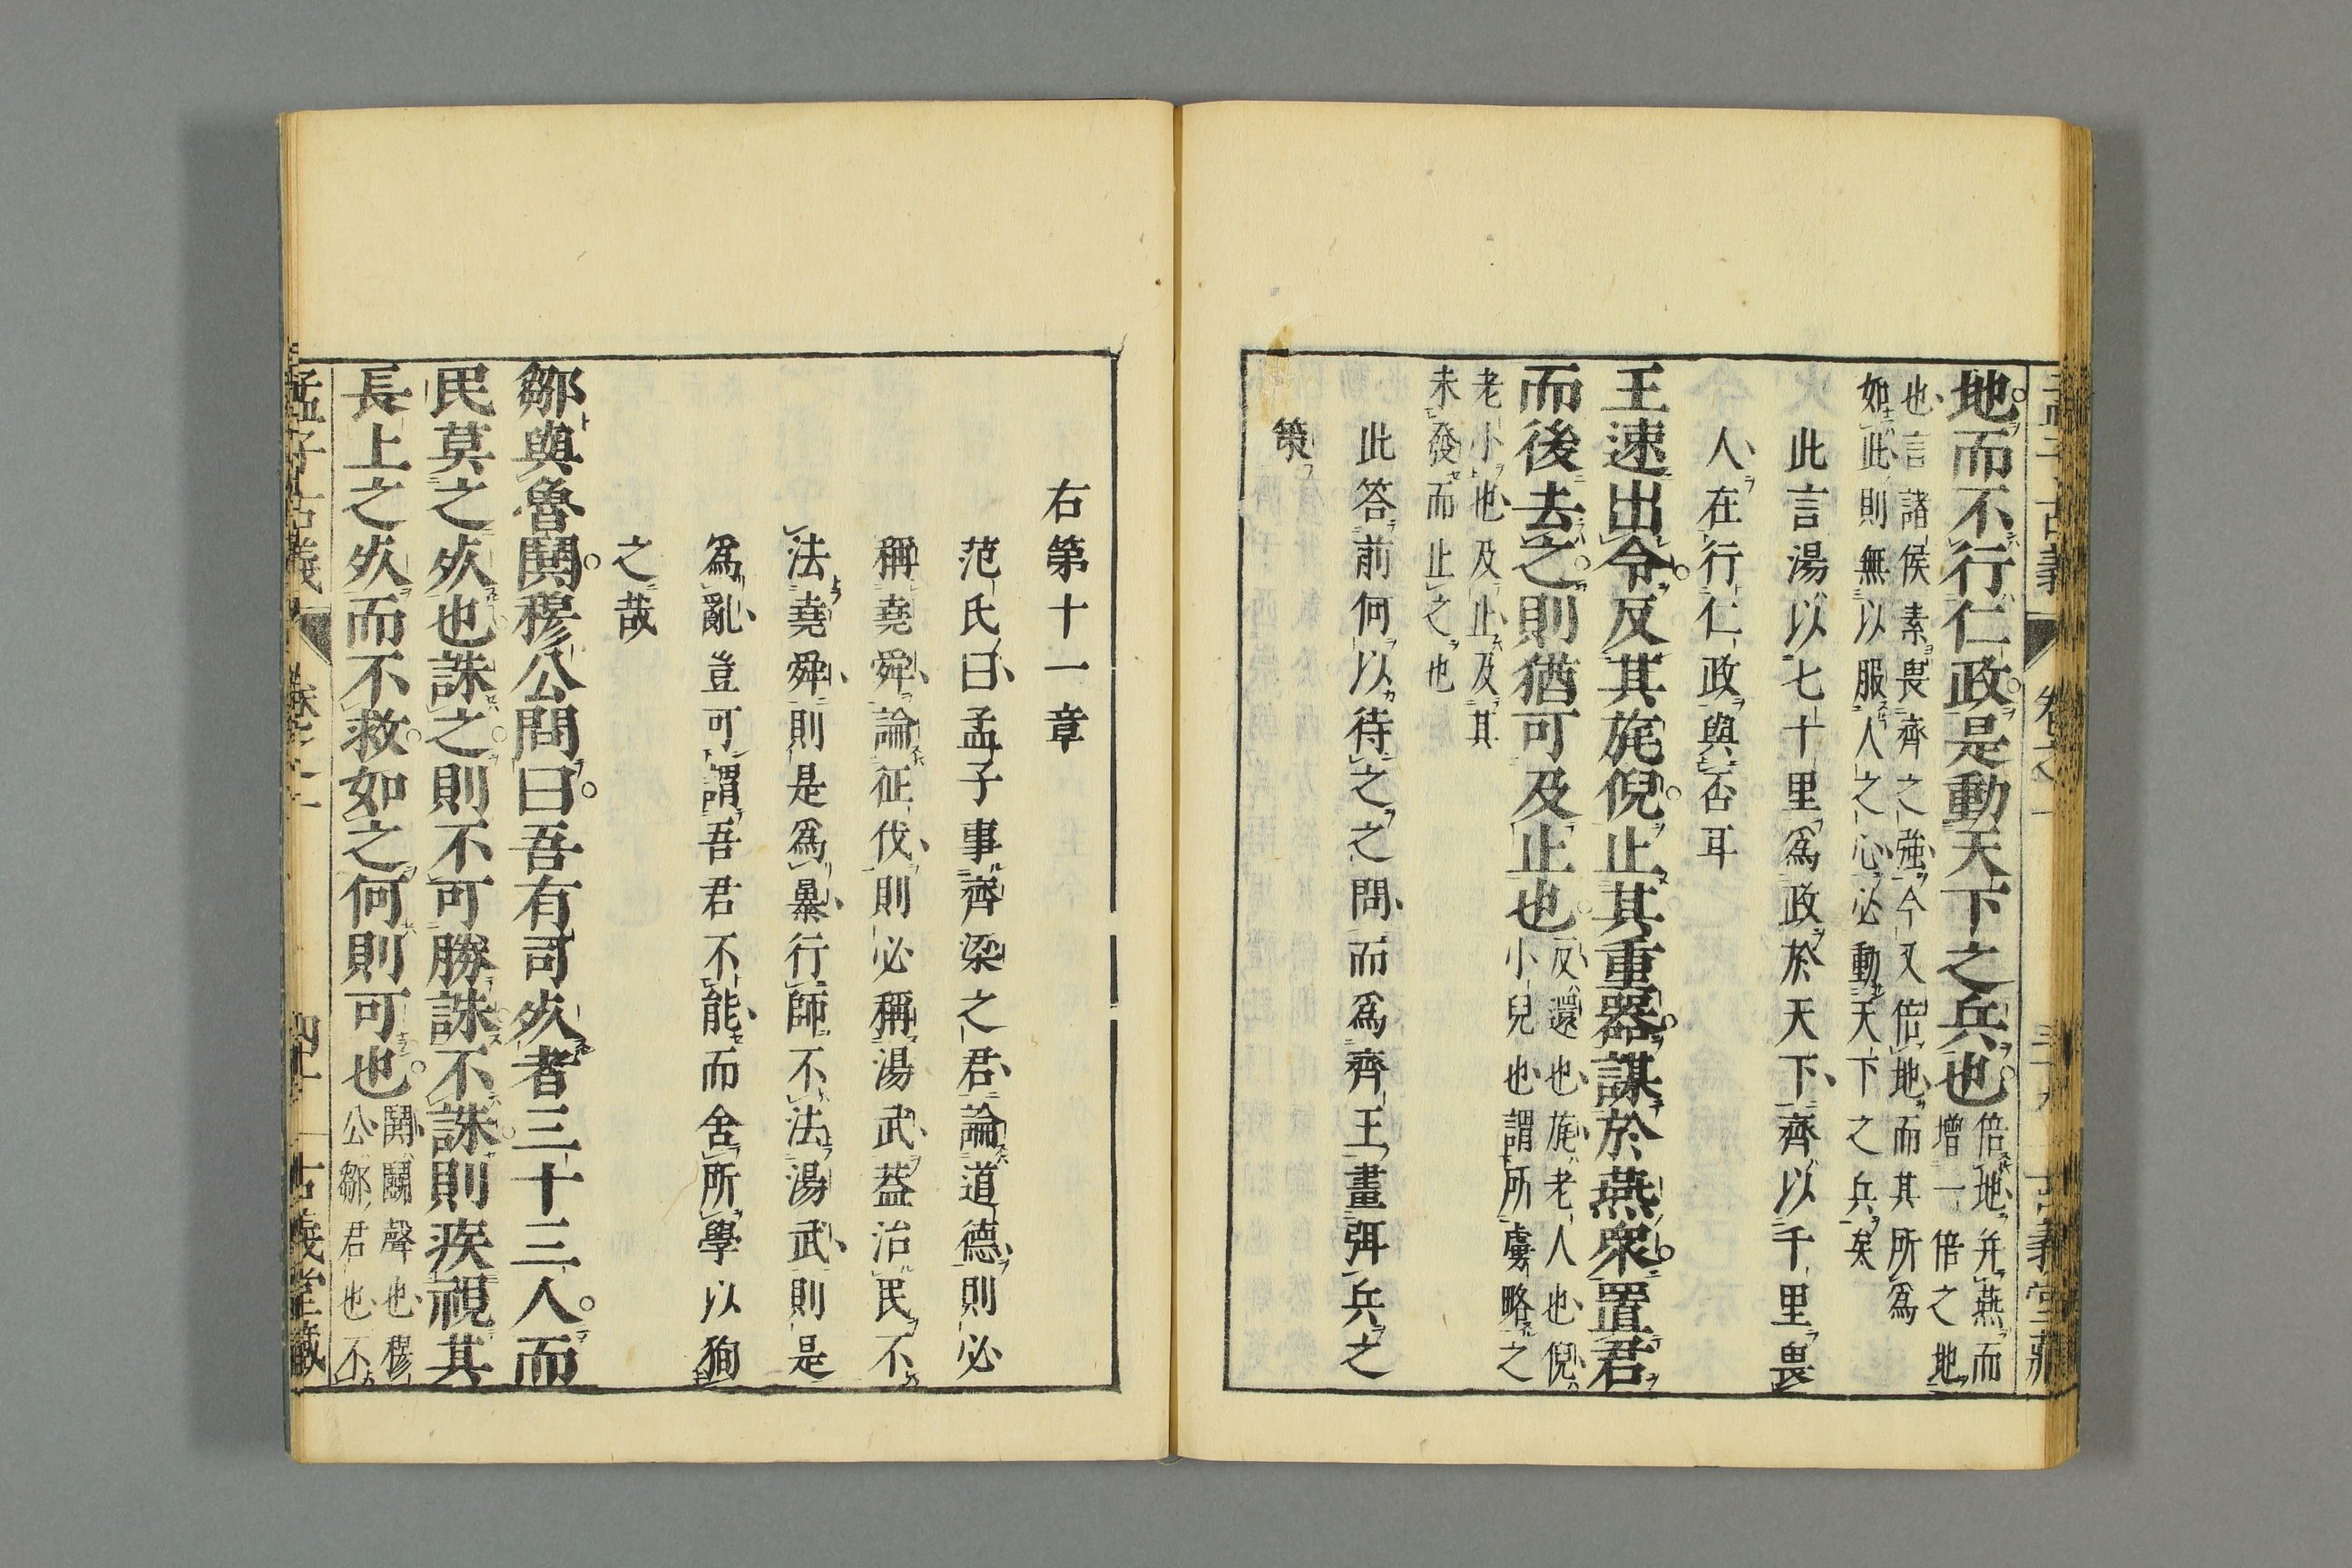 地而不行仁政是動天下之兵也
倍地并燕而
增一倍之地
也言諸侯素畏齊之強今又倍地而其所爲
如此則無以服人之心必動天下之兵矣
此言湯以七十里爲政於天下齊以千里畏
人在行仁政與否耳
王速出令反其旄倪止其重器謀於燕衆置君
而後去之則猶可及止也
反還也旄老人也倪
小兒也謂所虜略之
老小也及止及其
未發而止之也
此答前何以待之之問而爲齊王畫弭兵之
策
右第十一章
范氏曰孟子事齊梁之君論道德則必
稱堯舜論征伐則必稱湯武蓋治民不
法堯舜則是爲暴行師不法湯武則是
爲亂豈可謂吾君不能而舍所學以徇
之哉
鄒與魯鬨穆公問曰吾有司死者三十三人而
民莫之死也誅之則不可勝誅不誅則疾視其
長上之死而不救如之何則可也
鬨鬭聲也穆
公鄒君也不
孟子古義
卷之一
古義堂藏